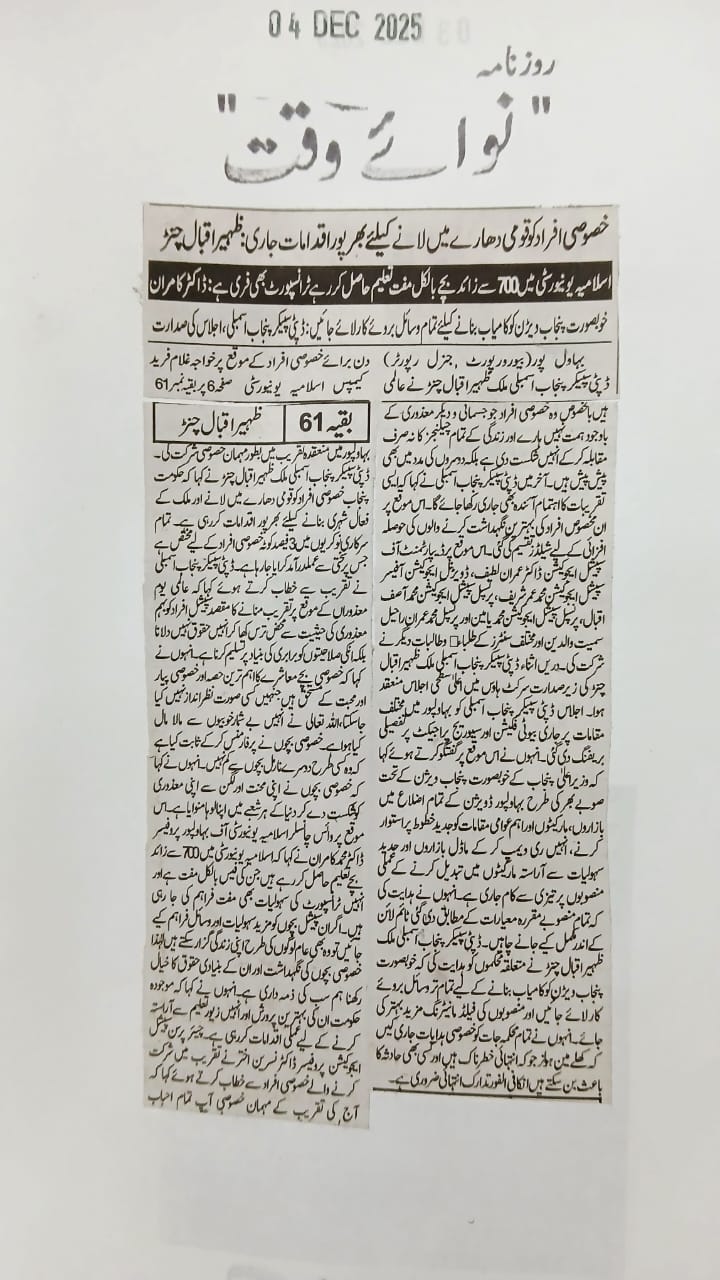 04 DEC 2025
روزنامہ
"نوائے وقت"
خصوصی افراد کو قومی دھارے میں لانے کیلئے بھرپور اقدامات جاری: ظہیر اقبال چنڑ
اسلامیہ یونیورسٹی میں 700 سے زائد بچے بالکل مفت تعلیم حاصل کر رہے ٹرانسپورٹ بھی فری ہے: ڈاکٹر کامران
خوبصورت پنجاب ویژن کو کامیاب بنانے کیلئے تمام وسائل بروئے کار لائے جائیں: ڈپٹی سپیکر پنجاب اسمبلی، اجلاس کی صدارت
بہاول پور (بیورو رپورٹ، جنرل رپورٹر)
ڈپٹی سپیکر پنجاب اسمبلی ملک ظہیر اقبال چنڑ نے عالمی
دن برائے خصوصی افراد کے موقع پر خواجہ غلام فرید
کیمپس اسلامیہ یونیورسٹی صفحہ 6 پر بقیہ نمبر 61
بقیہ 61 ظہیر اقبال چنڑ
بہاولپور میں منعقدہ تقریب میں بطور مہمان خصوصی شرکت کی۔
ڈپٹی سپیکر پنجاب اسمبلی ملک ظہیر اقبال چنڑ نے کہا کہ حکومت
پنجاب خصوصی افراد کو قومی دھارے میں لانے اور ملک کے
فعال شہری بنانے کیلئے بھرپور اقدامات کر رہی ہے۔ تمام
سرکاری نوکریوں میں 3 فیصد کوٹہ خصوصی افراد کے لیے مختص ہے
جس پر سختی سے عملدرآمد کرایا جا رہا ہے۔ ڈپٹی سپیکر پنجاب اسمبلی
نے تقریب سے خطاب کرتے ہوئے کہا کہ عالمی یوم
معذوراں کے موقع پر تقریب منانے کا مقصد سپیشل افراد کو ہم
معذوری کی حیثیت سے محض ترس کھا کر انہیں حقوق نہیں دلانا
بلکہ انکی صلاحیتوں کو برابری کی بنیاد پر تسلیم کرنا ہے۔ انہوں نے
کہا کہ خصوصی بچے معاشرے کا اہم ترین حصہ اور خصوصی پیار
اور محبت کے مستحق ہیں جنہیں کسی صورت نظر انداز نہیں کیا
جا سکتا، اللہ تعالی نے انہیں بے شمار خوبیوں سے مالا مال
کیا ہوا ہے۔ خصوصی بچوں نے پرفارمنس کر کے ثابت کیا ہے
کہ وہ کسی طرح دوسرے نارمل بچوں سے کم نہیں۔ انہوں نے کہا
کہ خصوصی بچوں نے اپنی محنت اور لگن سے اپنی معذوری
کو شکست دے کر دنیا کے ہر شعبے میں اپنا لوہا منوایا ہے۔ اس
موقع پر وائس چانسلر اسلامیہ یونیورسٹی آف بہاولپور پروفیسر
ڈاکٹر محمد کامران نے کہا کہ اسلامیہ یونیورسٹی میں 700 سے زائد
بچے تعلیم حاصل کر رہے ہیں جن کی فیس بالکل مفت ہے اور
انہیں ٹرانسپورٹ کی سہولیات بھی مفت فراہم کی جا رہی
ہیں۔ اگر ان سپیشل بچوں کو مزید سہولیات اور وسائل فراہم کیے
جائیں تو وہ بھی عام لوگوں کی طرح اپنی زندگی گزار سکتے ہیں لہٰذا
خصوصی بچوں کی نگہداشت اور ان کے بنیادی حقوق کا خیال
رکھنا ہم سب کی ذمہ داری ہے۔ انہوں نے کہا کہ موجودہ
حکومت ان کی بہترین پرورش اور انہیں زیور تعلیم سے آراستہ
کرنے کے لیے عملی اقدامات کر رہی ہے۔ چیئر پرسن سپیشل
ایجوکیشن پروفیسر ڈاکٹر نسرین اختر نے تقریب میں شرکت
کرنے والے خصوصی افراد سے خطاب کرتے ہوئے کہا کہ
آج کی تقریب کے مہمان خصوصی آپ تمام احباب
ہیں بالخصوص وہ خصوصی افراد جو جسمانی و دیگر معذوری کے
باوجود ہمت نہیں ہارے اور زندگی کے تمام چیلنجز کا نہ صرف
مقابلہ کر کے انہیں شکست دی ہے بلکہ دوسروں کی مدد میں بھی
پیش پیش ہیں۔ آخر میں ڈپٹی سپیکر پنجاب اسمبلی نے کہا کہ ایسی
تقریبات کا اہتمام آئندہ بھی جاری رکھا جائے گا۔ اس موقع پر
ان مخصوص افراد کی بہترین نگہداشت کرنے والوں کی حوصلہ
افزائی کے لیے شیلڈز تقسیم کی گئی۔ اس موقع پر ڈیپارٹمنٹ آف
سپیشل ایجوکیشن ڈاکٹر عمران لطیف، ڈویژنل ایجوکیشن آفیسر
سپیشل ایجوکیشن محمد عمر شریف، پرنسپل سپیشل ایجوکیشن محمد آصف
اقبال، پرنسپل سپیشل ایجوکیشن محمد یامین اور پرنسپل محمد عمران راحیل
سمیت والدین اور مختلف سنٹرز کے طلباء و طالبات دیگر نے
شرکت کی۔ دریں اثناء ڈپٹی سپیکر پنجاب اسمبلی ملک ظہیر اقبال
چنڑ کی زیر صدارت سرکٹ ہاوس میں اعلیٰ سطحی اجلاس منعقد
ہوا۔ اجلاس ڈپٹی سپیکر پنجاب اسمبلی کو بہاولپور میں مختلف
مقامات پر جاری بیوٹی فکیشن اور سیوریج پراجیکٹ پر تفصیلی
بریفنگ دی گئی۔ انہوں نے اس موقع پر گفتگو کرتے ہوئے کہا
کہ وزیر اعلیٰ پنجاب کے خوبصورت پنجاب ویژن کے تحت
صوبے بھر کی طرح بہاولپور ڈویژن کے تمام اضلاع میں
بازاروں، مارکیٹوں اور اہم عوامی مقامات کو جدید خطوط پر استوار
کرنے، انہیں ری ویمپ کر کے ماڈل بازاروں اور جدید
سہولیات سے آراستہ مارکیٹوں میں تبدیل کرنے کے عملی
منصوبوں پر تیزی سے کام جاری ہے۔ انہوں نے ہدایت کی
کہ تمام منصوبے مقررہ معیارات کے مطابق دی گئی ٹائم لائن
کے اندر مکمل کیے جانے چاہیں۔ ڈپٹی سپیکر پنجاب اسمبلی ملک
ظہیر اقبال چنڑ نے متعلقہ محکموں کو ہدایت کی کہ خوبصورت
پنجاب ویژن کو کامیاب بنانے کے لیے تمام تر وسائل بروئے
کار لائے جائیں اور منصوبوں کی فیلڈ مانیٹرنگ مزید بہتر کی
جائے۔ انہوں نے تمام محکمہ جات کو خصوصی ہدایات جاری کیں
کہ کھلے مین ہولز جو کہ انتہائی خطرناک ہیں اور کسی بھی حادثہ کا
باعث بن سکتے ہیں انکا فی الفور تدارک انتہائی ضروری ہے۔